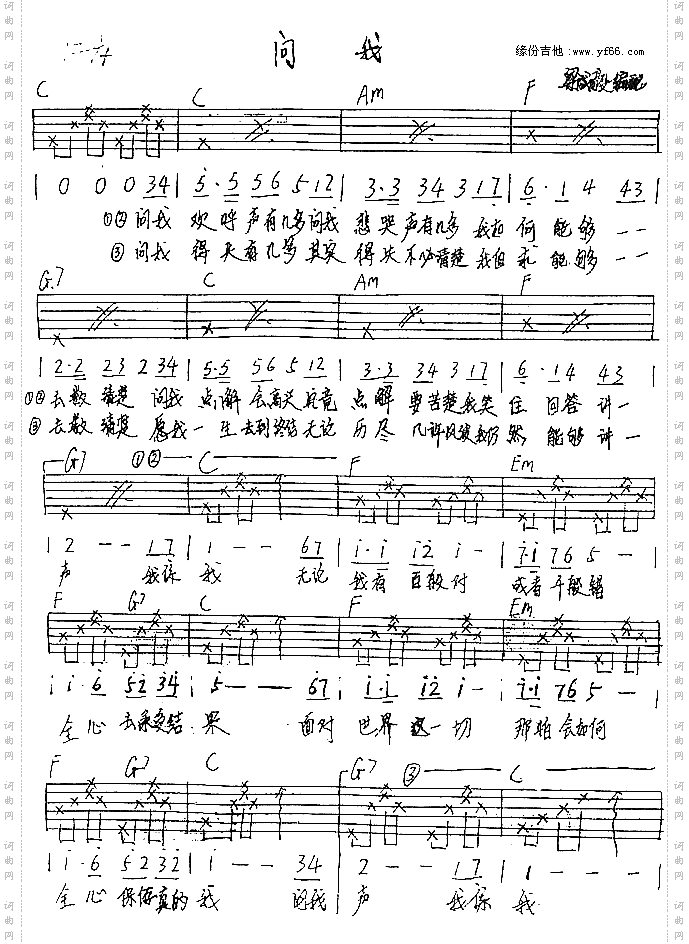 问 我
缘份吉他:www.yf66.com
C C Am F
| 0 0 0 34 | 5·5 56 5 12 | 3·3 34 3 17 | 6·1 4 43
①② 问我 欢呼声有几多 问我 悲哭声有几多 我如何能够 一一
③ 问我 得失有几多 其实 得失不必清楚 我但求能够 一一
G7 C Am F
| 2·2 23 2 34 | 5·5 56 5 12 | 3·3 34 3 17 | 6·14 43
①② 去数清楚 问我点解会高兴 究竟点解要苦楚 我笑住回答 讲一
③ 去数清楚 愿我一生去到终结 无论历尽几许风波 我仍然能够讲一
G7 ①② C F Em
| 2 - - 17 | 1 - - 67 | i·i i2 i - | 7·i 76 5 -
声 我系 我 无论 我有 百般对 或者 千般错
F G7 C F Em
| i i·6 52 34 | 5 - - 67 | i·i i2 i - | 7·i 76 5 -
全心去承受结果 面对世界一切 那怕会如何
F G7 C G7 ③ C
| i i·6 52 32 | 1 - - 34 | 2 - - 17 | 1 - - -
全心保存真的我 问我 声 我系 我
词曲网